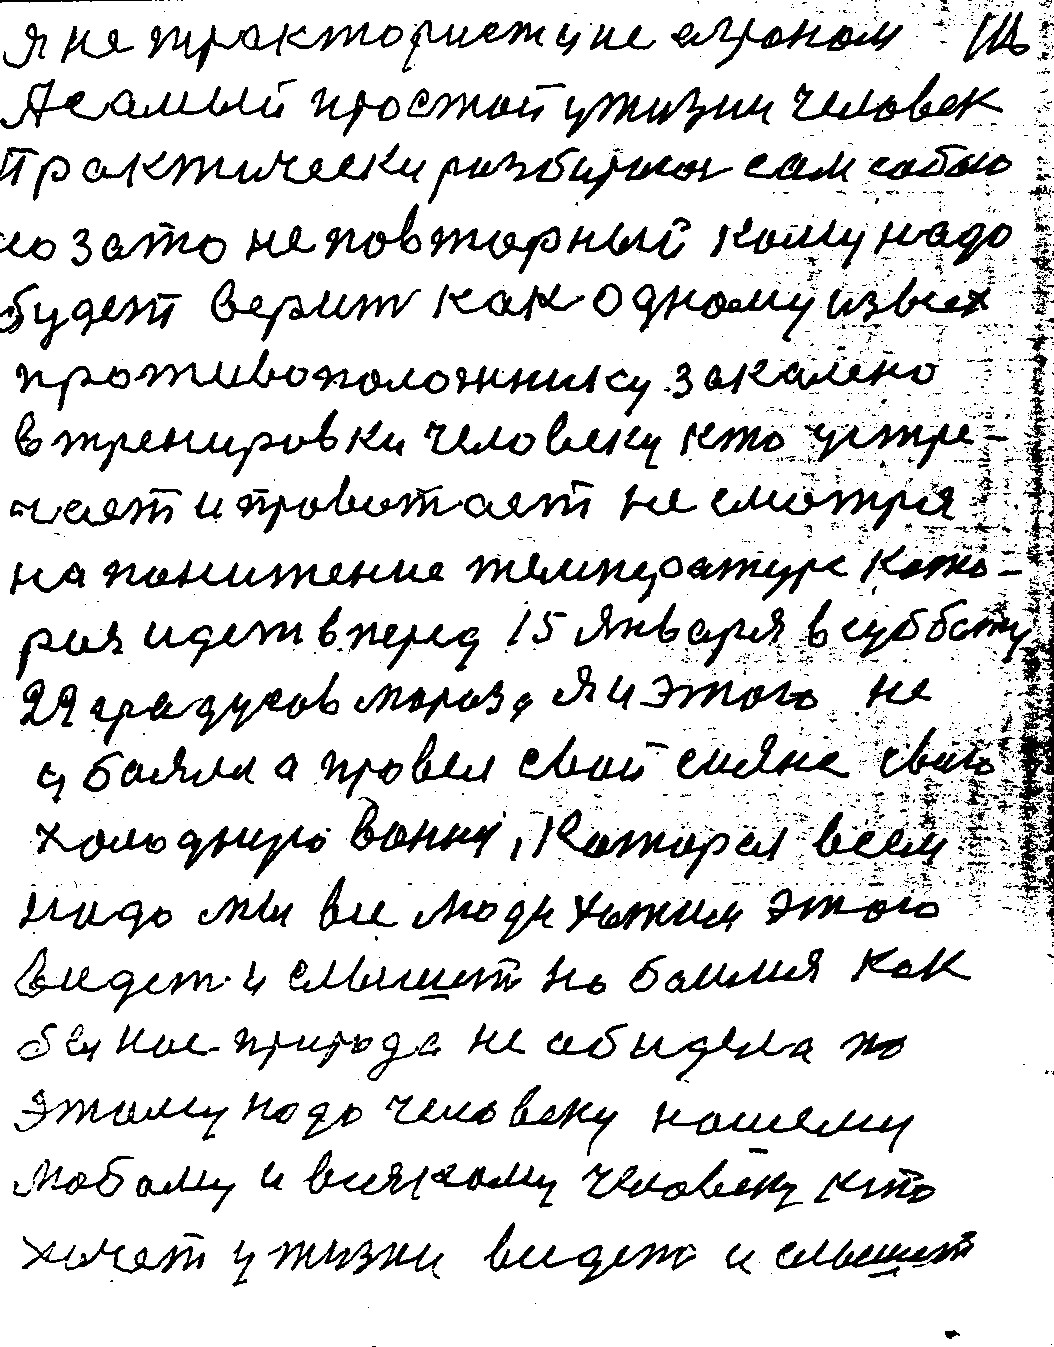 Я не тракторист и не агроном
А самый простой у жизни человек
практически разбитися сам собою
но зато неповторный кому надо
будет верит как одному из всех
противоположнику закалено
в тренировки человеку кто устре-
чает и провотает не смотря
на понитение температуре кото-
рая идет вперед 15 января в субботу
29 градусов мороза я и этого не
убоялся а провел свой сияне свою
холодную ванну, которая всем
надо мы все люди хотим этого
видет и слышет но боимся как
бы нас природа не обидела по
этому надо человеку нашему
любому и всякому человеку кто
хочет у жизни видет и слышет